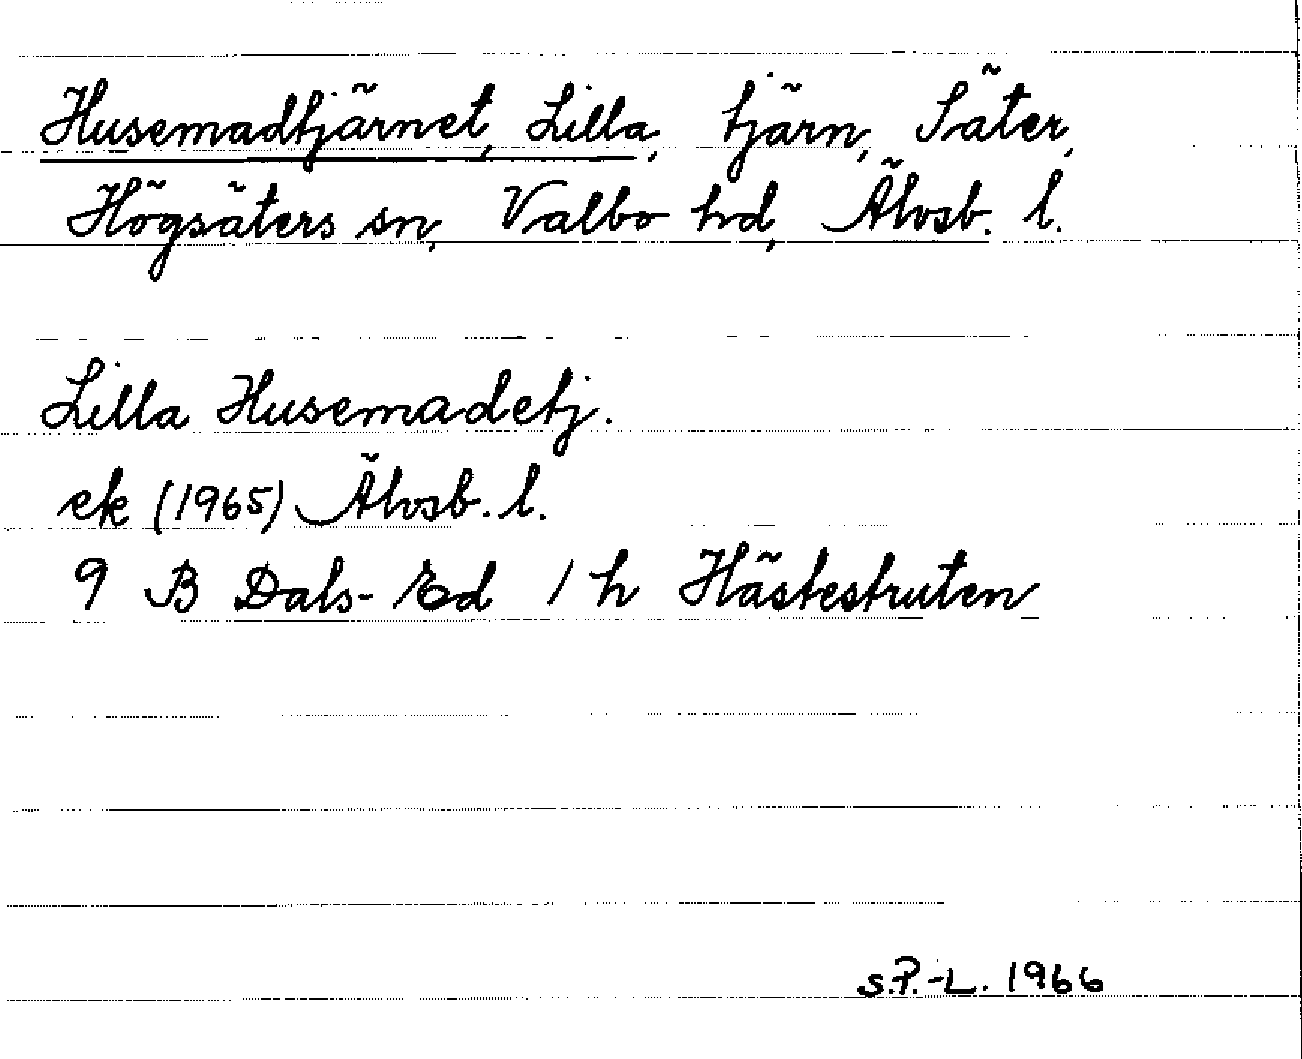 Husemadtjärnet, Lilla, tjärn, Säter,
Högsäters sn, Valbo hd, Älvsb. l.
Lilla Husemadetj.
ek (1965) Älvsb. l.
9 B Dals-Ed 1 h Hästestruten
S.P.-L. 1966